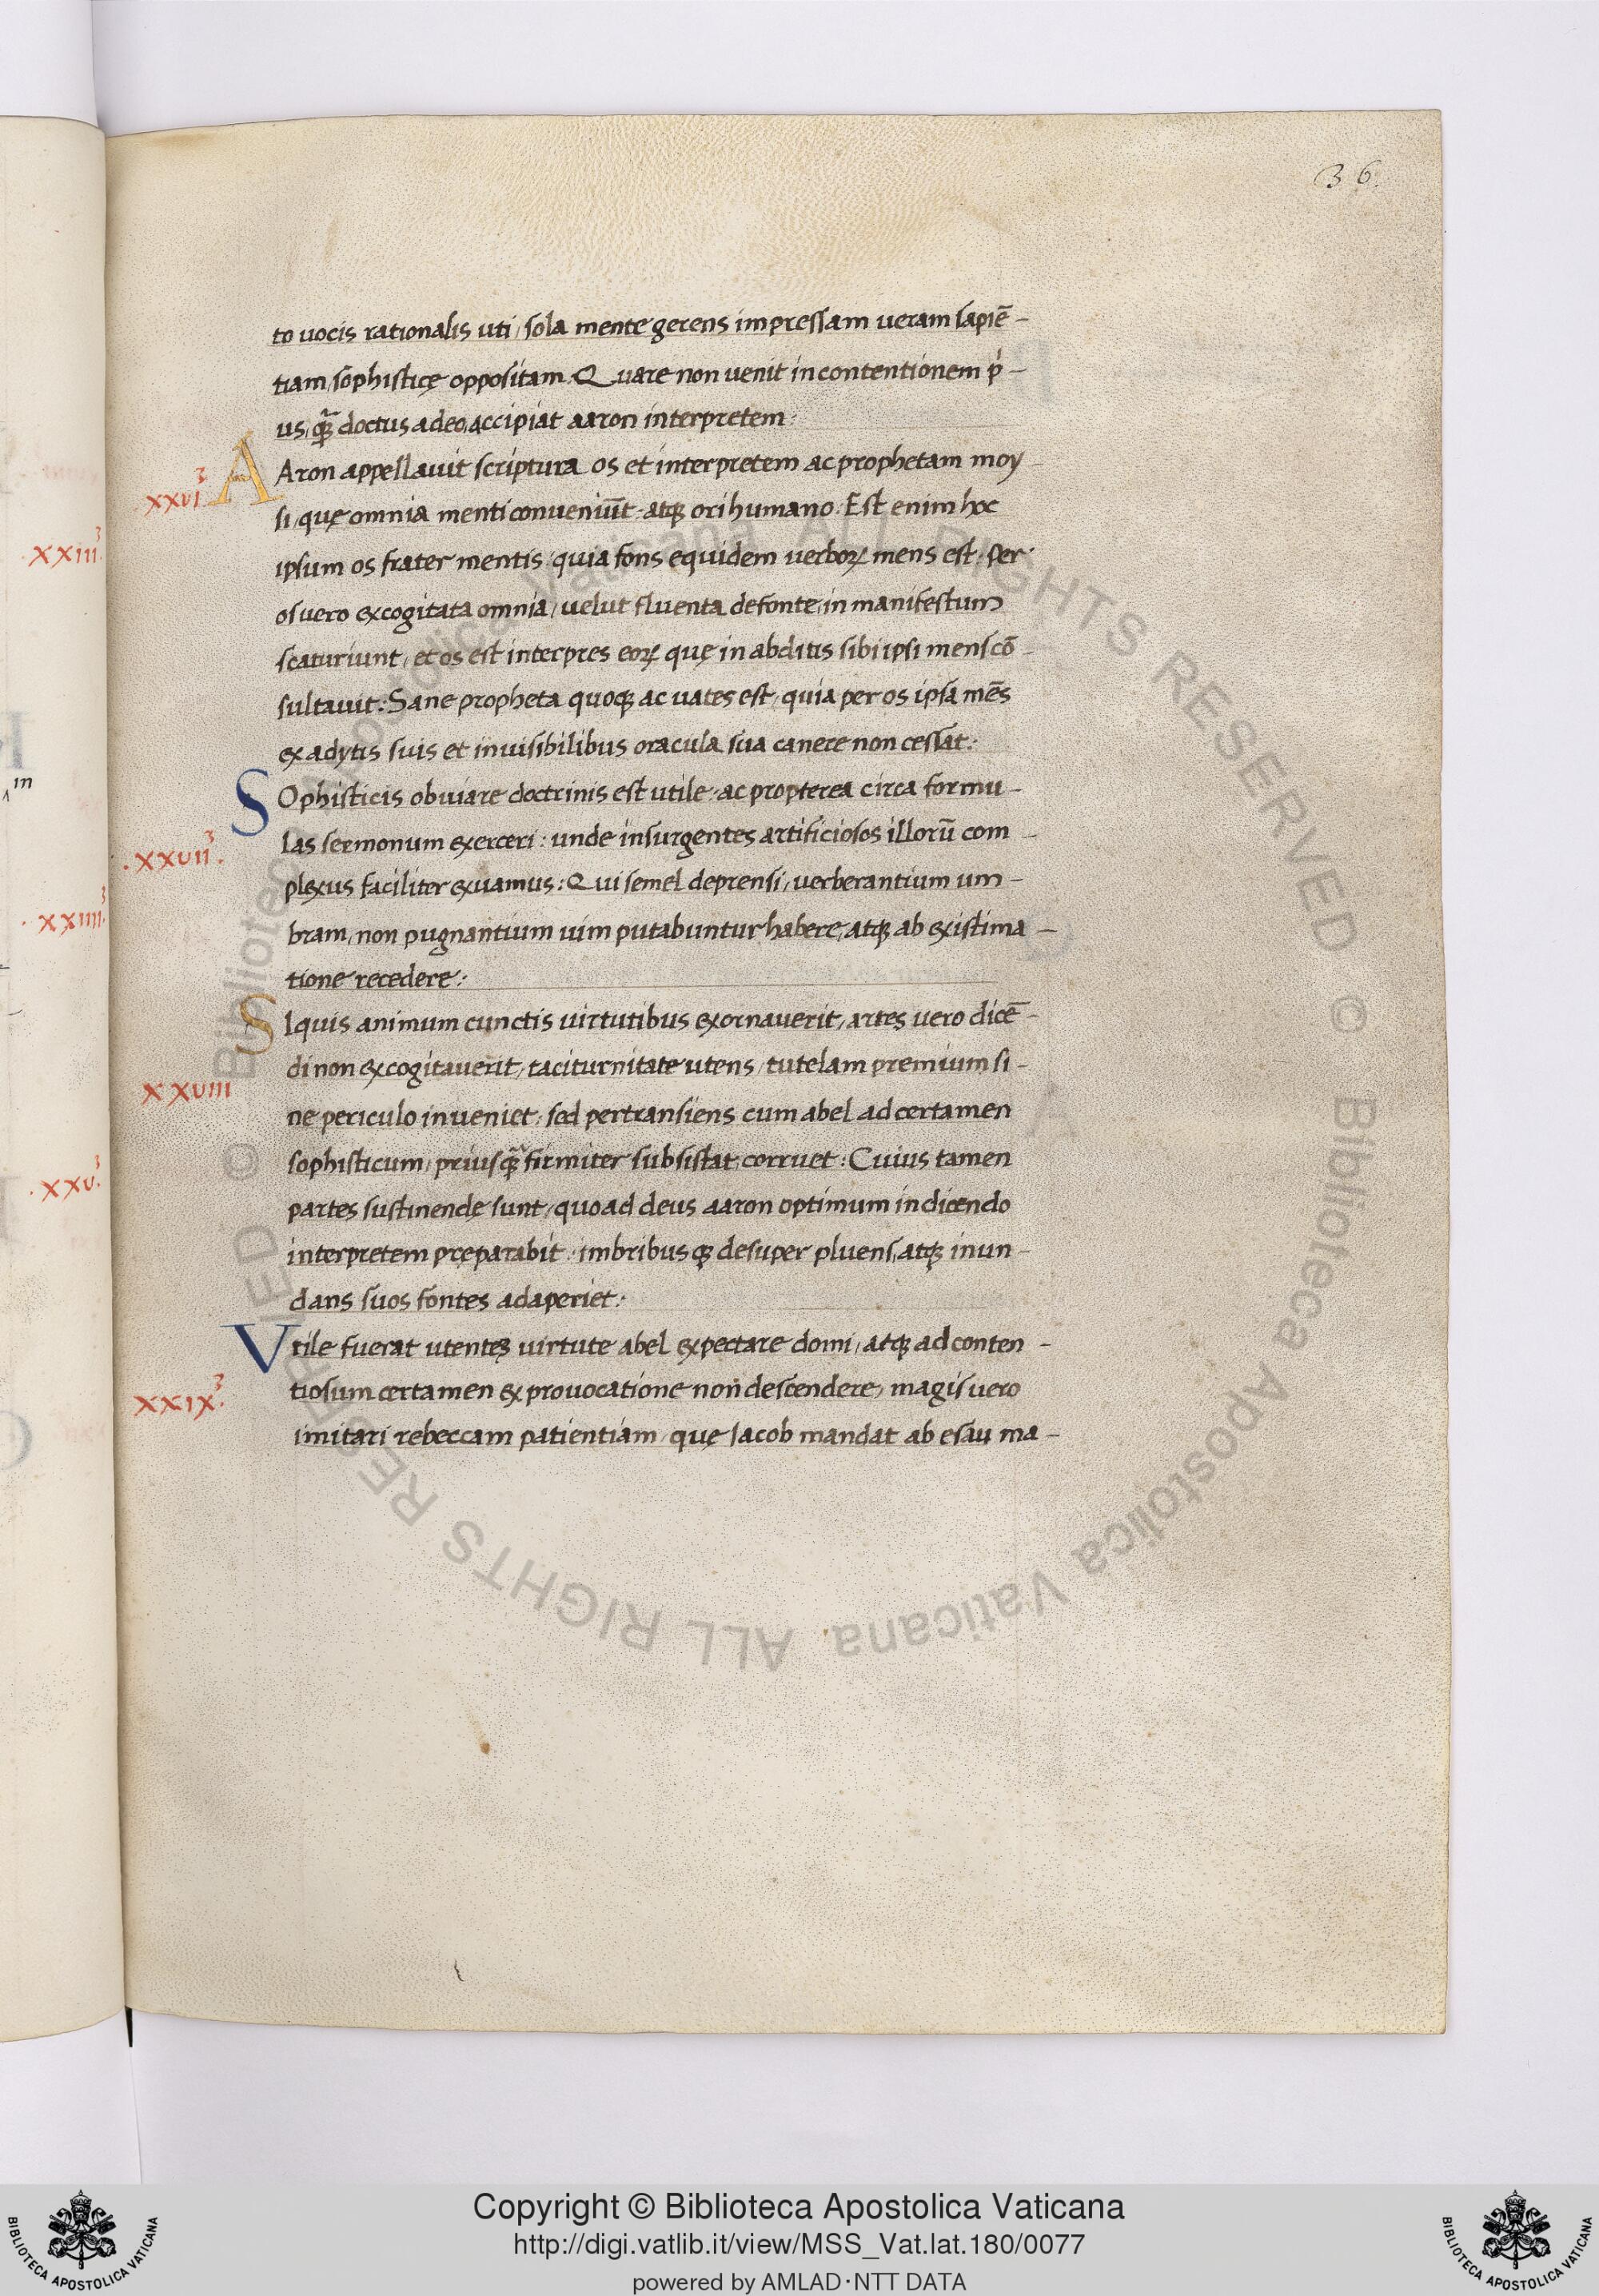 36.
to uocis rationalis uti, sola mente gerens impressam ueram sapiē-
tiam, sophisticę oppositam. Quare non uenit in contentionem pi-
us, quã doctus a deo, accipiat aaron interpretem:
xxvi. AAron appellauit scriptura os et interpretem ac prophetam moy-
si, quę omnia menti conueniūt, atq; ori humano. Est enim hoc
xxiii.
ipsum os frater mentis, quia fons equidem verboꝝ mens est. per
os uero excogitata omnia, uelut fluenta de fonte, in manifestum
scaturiunt, et os est interpres eoꝝ quę in abditis sibi ipsi mens cō-
sultauit: Sane propheta quoq; ac uates est, quia per os ipsa mēs
ex adytis suis et inuisibilibus oracula sua canere non cessat:
m
SOphisticis obuiare doctrinis est utile, ac propterea circa formu-
las sermonum exerceri: unde insurgentes artificiosos illorū com-
.xxvii.
plexus faciliter exuamus: Qui semel deprensi, uerberantium um-
xxiiii.
bram, non pugnantium uim putabuntur habere, atq; ab existima-
tione recedere:
SIquis animum cunctis uirtutibus exornauerit, artes uero dicē-
di non excogitauerit, taciturnitate utens, tutelam premium si-
xxviii
ne periculo inueniet, sed pertransiens cum abel ad certamen
sophisticum, priusquã firmiter subsistat, corruet: Cuius tamen
.xxv.
partes sustinendę sunt, quoad deus aaron optimum in dicendo
interpretem pręparabit: imbribusq; desuper pluens, atq; inun-
dans suos fontes adaperiet:
Vtile fuerat utentes uirtute abel expectare domi, atq; ad conten-
tiosum certamen ex prouocatione non descendere, magis uero
xxix.
imitari rebeccam patientiam, quę Iacob mandat ab esau ma-
Copyright © Biblioteca Apostolica Vaticana
http://digi.vatlib.it/view/MSS_Vat.lat.180/0077
powered by AMLAD·NTT DATA
© Biblioteca Apostolica Vaticana ALL RIGHTS RESERVED © Biblioteca Apostolica Vaticana ALL RIGHTS RESERVED
BIBLIOTECA APOSTOLICA VATICANA
BIBLIOTECA APOSTOLICA VATICANA